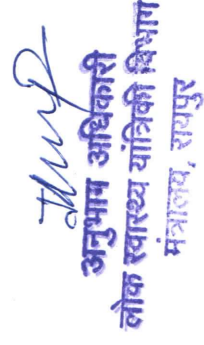 अनुभाग अधिकारी
लोक स्वास्थ्य यांत्रिकी विभाग
मंत्रालय, रायपुर